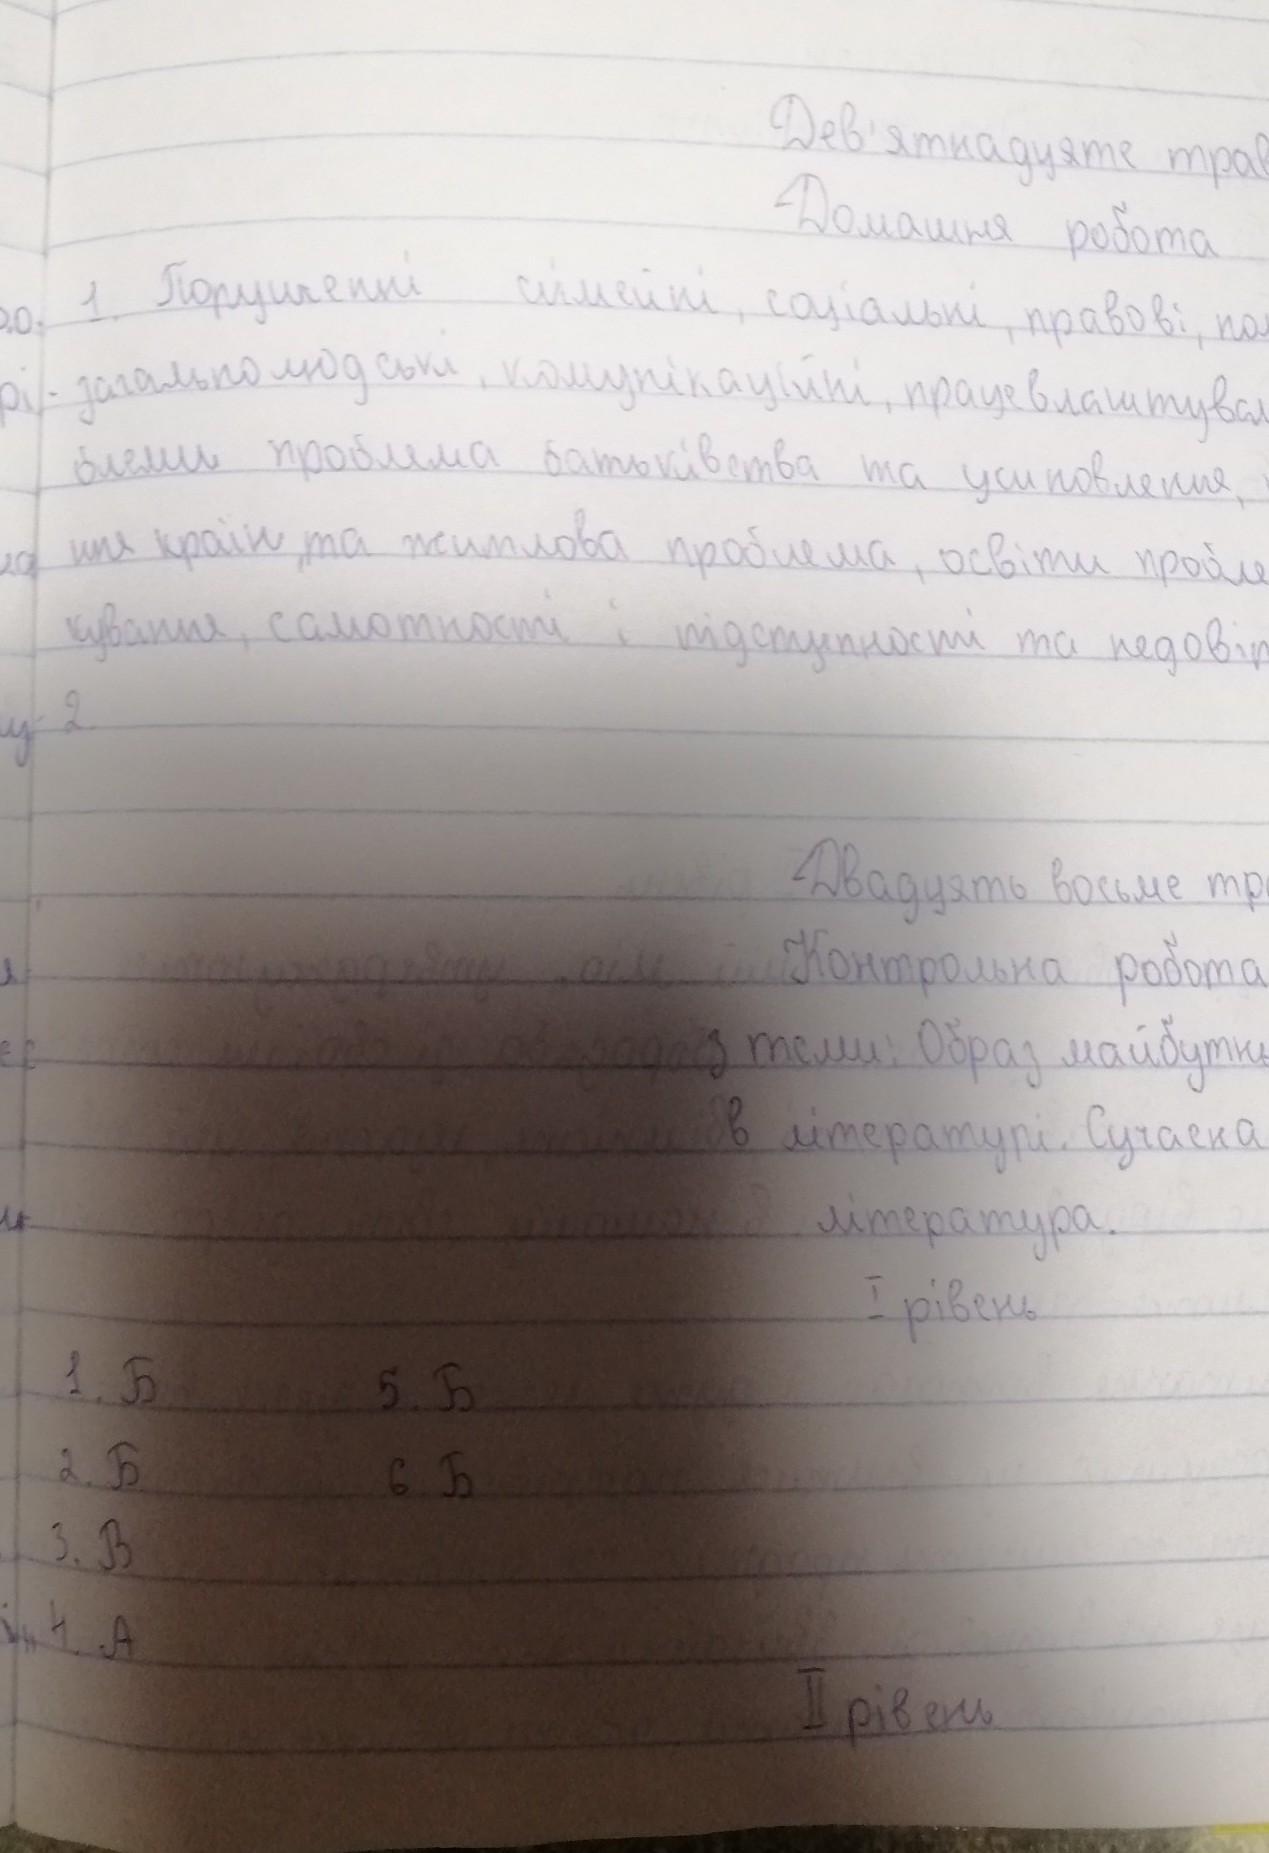 Дев'ятнадцяте трав
Домашня робота
1. Порушенні сімейні, соціальні, правові, пол
загальнолюдські, комунікаційні, працевлаштуван
блеми проблема батьківства та усиновлення,
ння країн, та житлова проблема, освіти пробле
кування, самотності і підступності та недовір
2
Двадцять восьме тра
Контрольна робота
з теми: Образ майбутнь
в літературі. Сучасна
література.
I рівень
1. Б 5. Б
2. Б 6 Б
3. В
4. А
II рівень